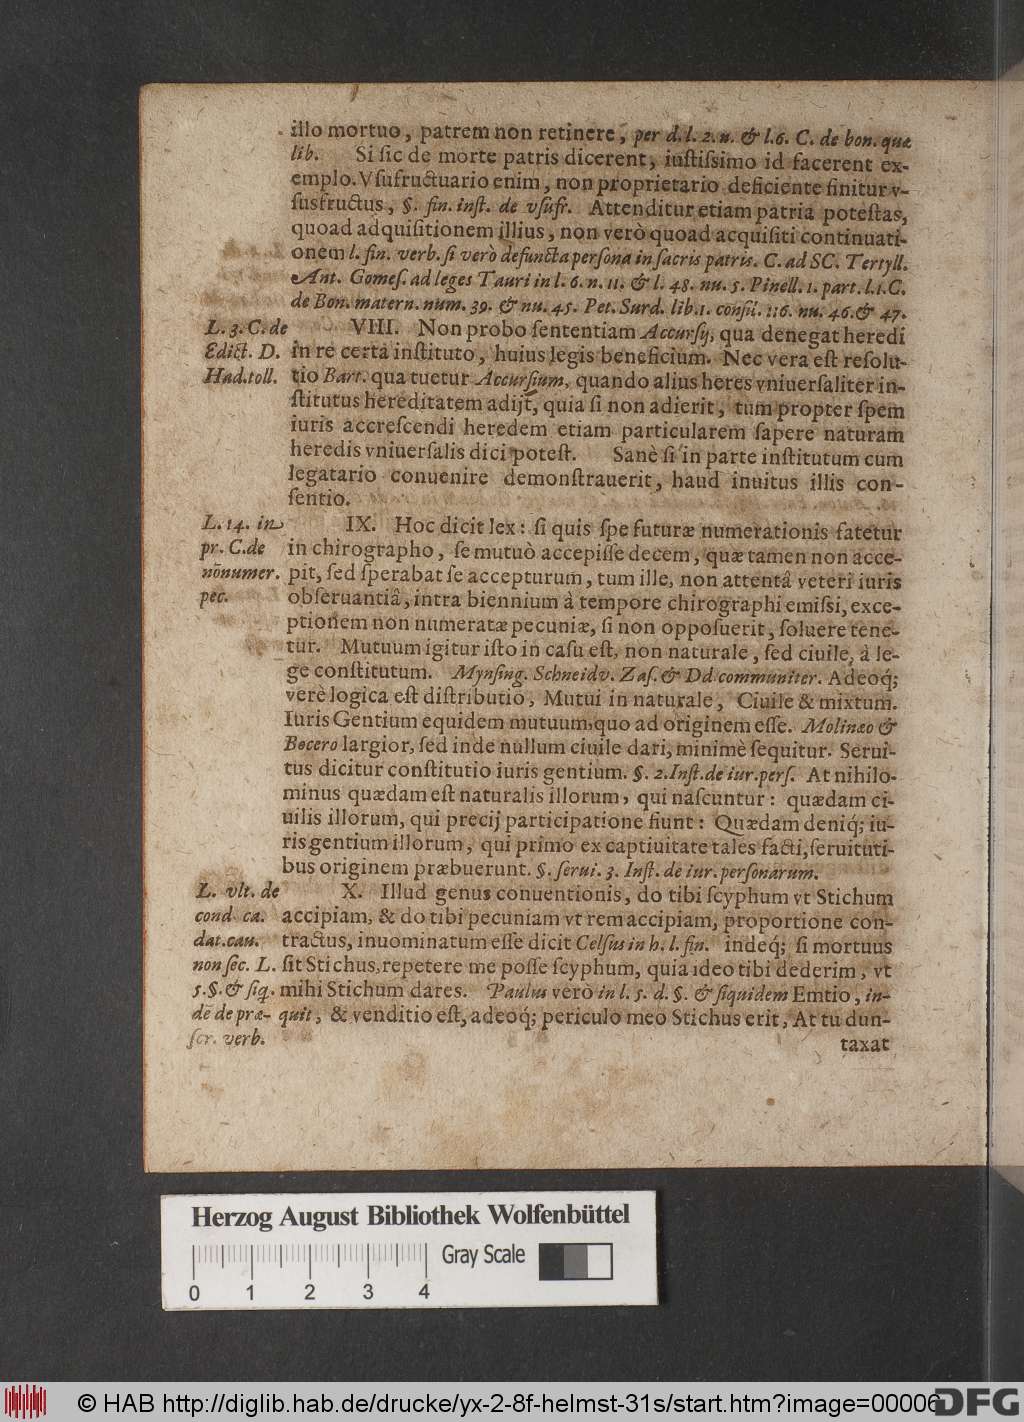 illo mortuo, patrem non retinere, per d. l. 2. n. & l. 6. C. de bon. quæ
lib. Si ſic de morte patris dicerent, iuſtiſsimo id facerent ex-
emplo. Vſufructuario enim, non proprietario deficiente finitur v-
ſusfructus, §. fin. inſt. de vſufr. Attenditur etiam patria poteſtas,
quoad adquiſitionem illius, non verò quoad acquiſiti continuati-
onem l. fin. verb. ſi verò defuncta perſona in ſacris patris. C. ad SC. Tertyll.
Ant. Gomeſ. ad leges Tauri in l. 6. n. 11. & l. 48. nu. 5. Pinell. 1. part. l. 1. C.
de Bon. matern. num. 39. & nu. 45. Pet. Surd. lib. 1. conſil. 116. nu. 46. & 47.
L. 3. C. de
Edict. D.
Had. toll.
VIII. Non probo ſententiam Accurſij, qua denegat heredi
in re certa inſtituto, huius legis beneficium. Nec vera eſt reſolu-
tio Bart. qua tuetur Accurſium, quando alius heres vniuerſaliter in-
ſtitutus hereditatem adijt, quia ſi non adierit, tum propter ſpem
iuris accreſcendi heredem etiam particularem ſapere naturam
heredis vniuerſalis dici poteſt. Sanè ſi in parte inſtitutum cum
legatario conuenire demonſtrauerit, haud inuitus illis con-
ſentio.
L. 14. in
pr. C. de
nõnumer.
pec.
IX. Hoc dicit lex: ſi quis ſpe futuræ numerationis fatetur
in chirographo, ſe mutuò accepiſſe decem, quæ tamen non acce-
pit, ſed ſperabat ſe accepturum, tum ille, non attentâ veteri iuris
obſeruantiâ, intra biennium à tempore chirographi emiſsi, exce-
ptionem non numeratæ pecuniæ, ſi non oppoſuerit, ſoluere tene-
tur. Mutuum igitur iſto in caſu eſt, non naturale, ſed ciuile, à le-
ge conſtitutum. Mynſing. Schneidv. Zaſ. & Dd communiter. Adeoq́;
verè logica eſt diſtributio, Mutui in naturale, Ciuile & mixtum.
Iuris Gentium equidem mutuum, quo ad originem eſſe. Molinæo &
Bocero largior, ſed inde nullum ciuile dari, minimè ſequitur. Serui-
tus dicitur conſtitutio iuris gentium. §. 2. Inſt. de iur. perſ. At nihilo-
minus quædam eſt naturalis illorum, qui naſcuntur: quædam ci-
uilis illorum, qui precij participatione fiunt: Quædam deniq́; iu-
ris gentium illorum, qui primo ex captiuitate tales facti, ſeruituti-
bus originem præbuerunt. §. ſerui. 3. Inſt. de iur. perſonarum.
L. vlt. de
cond. ca.
dat. cau.
non ſec. L.
5. §. & ſiq.
de de præ-
ſcr. verb.
X. Illud genus conuentionis, do tibi ſcyphum vt Stichum
accipiam, & do tibi pecuniam vt rem accipiam, proportione con-
tractus, inuominatum eſſe dicit Celſus in h. l. fin. indeq́; ſi mortuus
ſit Stichus, repetere me poſſe ſcyphum, quia ideo tibi dederim, vt
mihi Stichum dares. Paulus verò in l. 5. d. §. & ſiquidem Emtio, in-
quit, & venditio eſt, adeoq́; periculo meo Stichus erit, At tu dun-
taxat
Herzog August Bibliothek Wolfenbüttel
Gray Scale
0 1 2 3 4
© HAB http://diglib.hab.de/drucke/yx-2-8f-helmst-31s/start.htm?image=00006
DFG